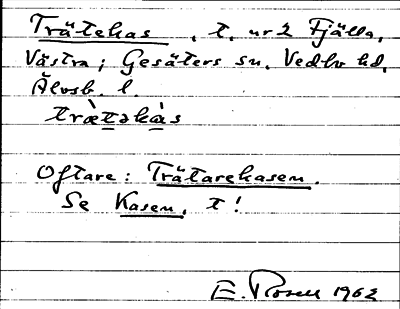 Trätekas, t. nr 2 Fjälla,
Västra; Gesäters sn. Vedbo hd.
Älvsb. l.
trætəkàs
Oftare: Trätarekasen.
Se Kasen, t!
E. Rosell 1962